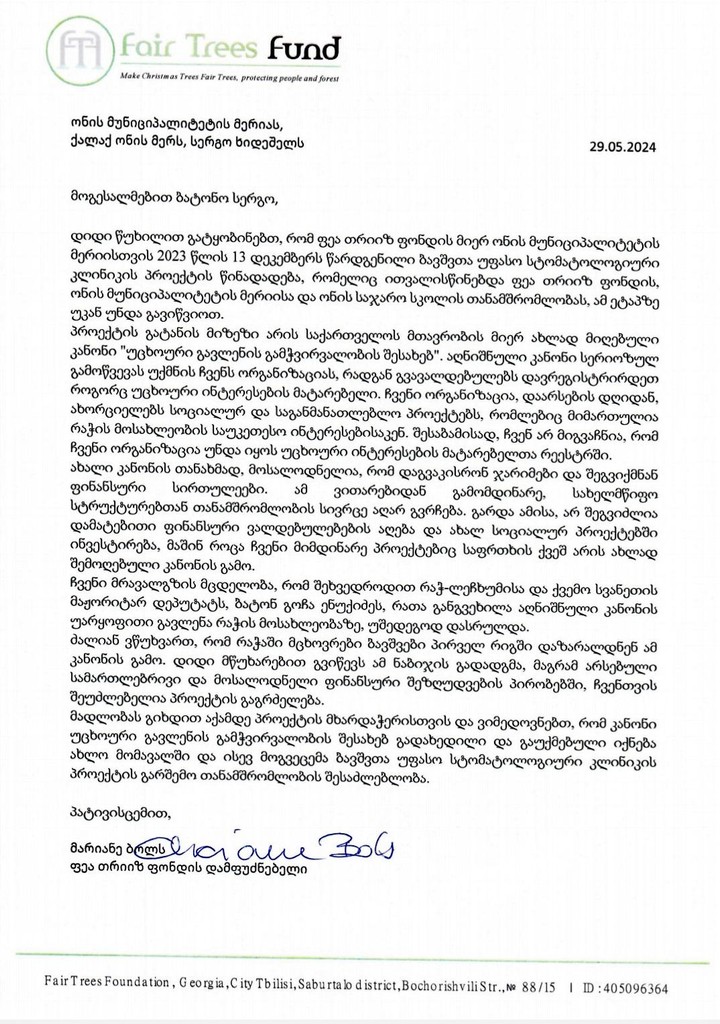 Fair Trees Fund
Make Christmas Trees Fair Trees, protecting people and forest
ონის მუნიციპალიტეტის მერიას,
ქალაქ ონის მერს, სერგო ხიდეშელს
29.05.2024
მოგესალმებით ბატონო სერგო,
დიდი წუხილით გატყობინებთ, რომ ფეა თრიიზ ფონდის მიერ ონის მუნიციპალიტეტის
მერიისთვის 2023 წლის 13 დეკემბერს წარდგენილი ბავშვთა უფასო სტომატოლოგიური
კლინიკის პროექტის წინადადება, რომელიც ითვალისწინებდა ფეა თრიიზ ფონდის,
ონის მუნიციპალიტეტის მერიისა და ონის საჯარო სკოლის თანამშრომლობას, ამ ეტაპზე
უკან უნდა გავიწვიოთ.
პროექტის გატანის მიზეზი არის საქართველოს მთავრობის მიერ ახლად მიღებული
კანონი "უცხოური გავლენის გამჭვირვალობის შესახებ". აღნიშნული კანონი სერიოზულ
გამოწვევას უქმნის ჩვენს ორგანიზაციას, რადგან გვავალდებულებს დავრეგისტრირდეთ
როგორც უცხოური ინტერესების მატარებელი. ჩვენი ორგანიზაცია, დაარსების დღიდან,
ახორციელებს სოციალურ და საგანმანათლებლო პროექტებს, რომლებიც მიმართულია
რაჭის მოსახლეობის საუკეთესო ინტერესებისაკენ. შესაბამისად, ჩვენ არ მიგვაჩნია, რომ
ჩვენი ორგანიზაცია უნდა იყოს უცხოური ინტერესების მატარებელთა რეესტრში.
ახალი კანონის თანახმად, მოსალოდნელია, რომ დაგვაკისრონ ჯარიმები და შეგვიქმნან
ფინანსური სირთულეები. ამ ვითარებიდან გამომდინარე, სახელმწიფო
სტრუქტურებთან თანამშრომლობის სივრცე აღარ გვრჩება. გარდა ამისა, არ შეგვიძლია
დამატებითი ფინანსური ვალდებულებების აღება და ახალ სოციალურ პროექტებში
ინვესტირება, მაშინ როცა ჩვენი მიმდინარე პროექტებიც საფრთხის ქვეშ არის ახლად
შემოღებული კანონის გამო.
ჩვენი მრავალგზის მცდელობა, რომ შეხვედროდით რაჭ-ლეჩხუმისა და ქვემო სვანეთის
მაჟორიტარ დეპუტატს, ბატონ გოჩა ენუქიძეს, რათა განგვეხილა აღნიშნული კანონის
უარყოფითი გავლენა რაჭის მოსახლეობაზე, უშედეგოდ დასრულდა.
ძალიან ვწუხვართ, რომ რაჭაში მცხოვრები ბავშვები პირველ რიგში დაზარალდნენ ამ
კანონის გამო. დიდი მწუხარებით გვიწევს ამ ნაბიჯის გადადგმა, მაგრამ არსებული
სამართლებრივი და მოსალოდნელი ფინანსური შეზღუდვების პირობებში, ჩვენთვის
შეუძლებელია პროექტის გაგრძელება.
მადლობას გიხდით აქამდე პროექტის მხარდაჭერისთვის და ვიმედოვნებთ, რომ კანონი
უცხოური გავლენის გამჭვირვალობის შესახებ გადახედილი და გაუქმებული იქნება
ახლო მომავალში და ისევ მოგვეცემა ბავშვთა უფასო სტომატოლოგიური კლინიკის
პროექტის გარშემო თანამშრომლობის შესაძლებლობა.
პატივისცემით,
მარიანე ბოლს Marianne Bols
ფეა თრიიზ ფონდის დამფუძნებელი
FairTrees Foundation, Georgia, City Tbilisi, Saburtalo district, Bochorishvili Str., № 88/15 | ID:405096364